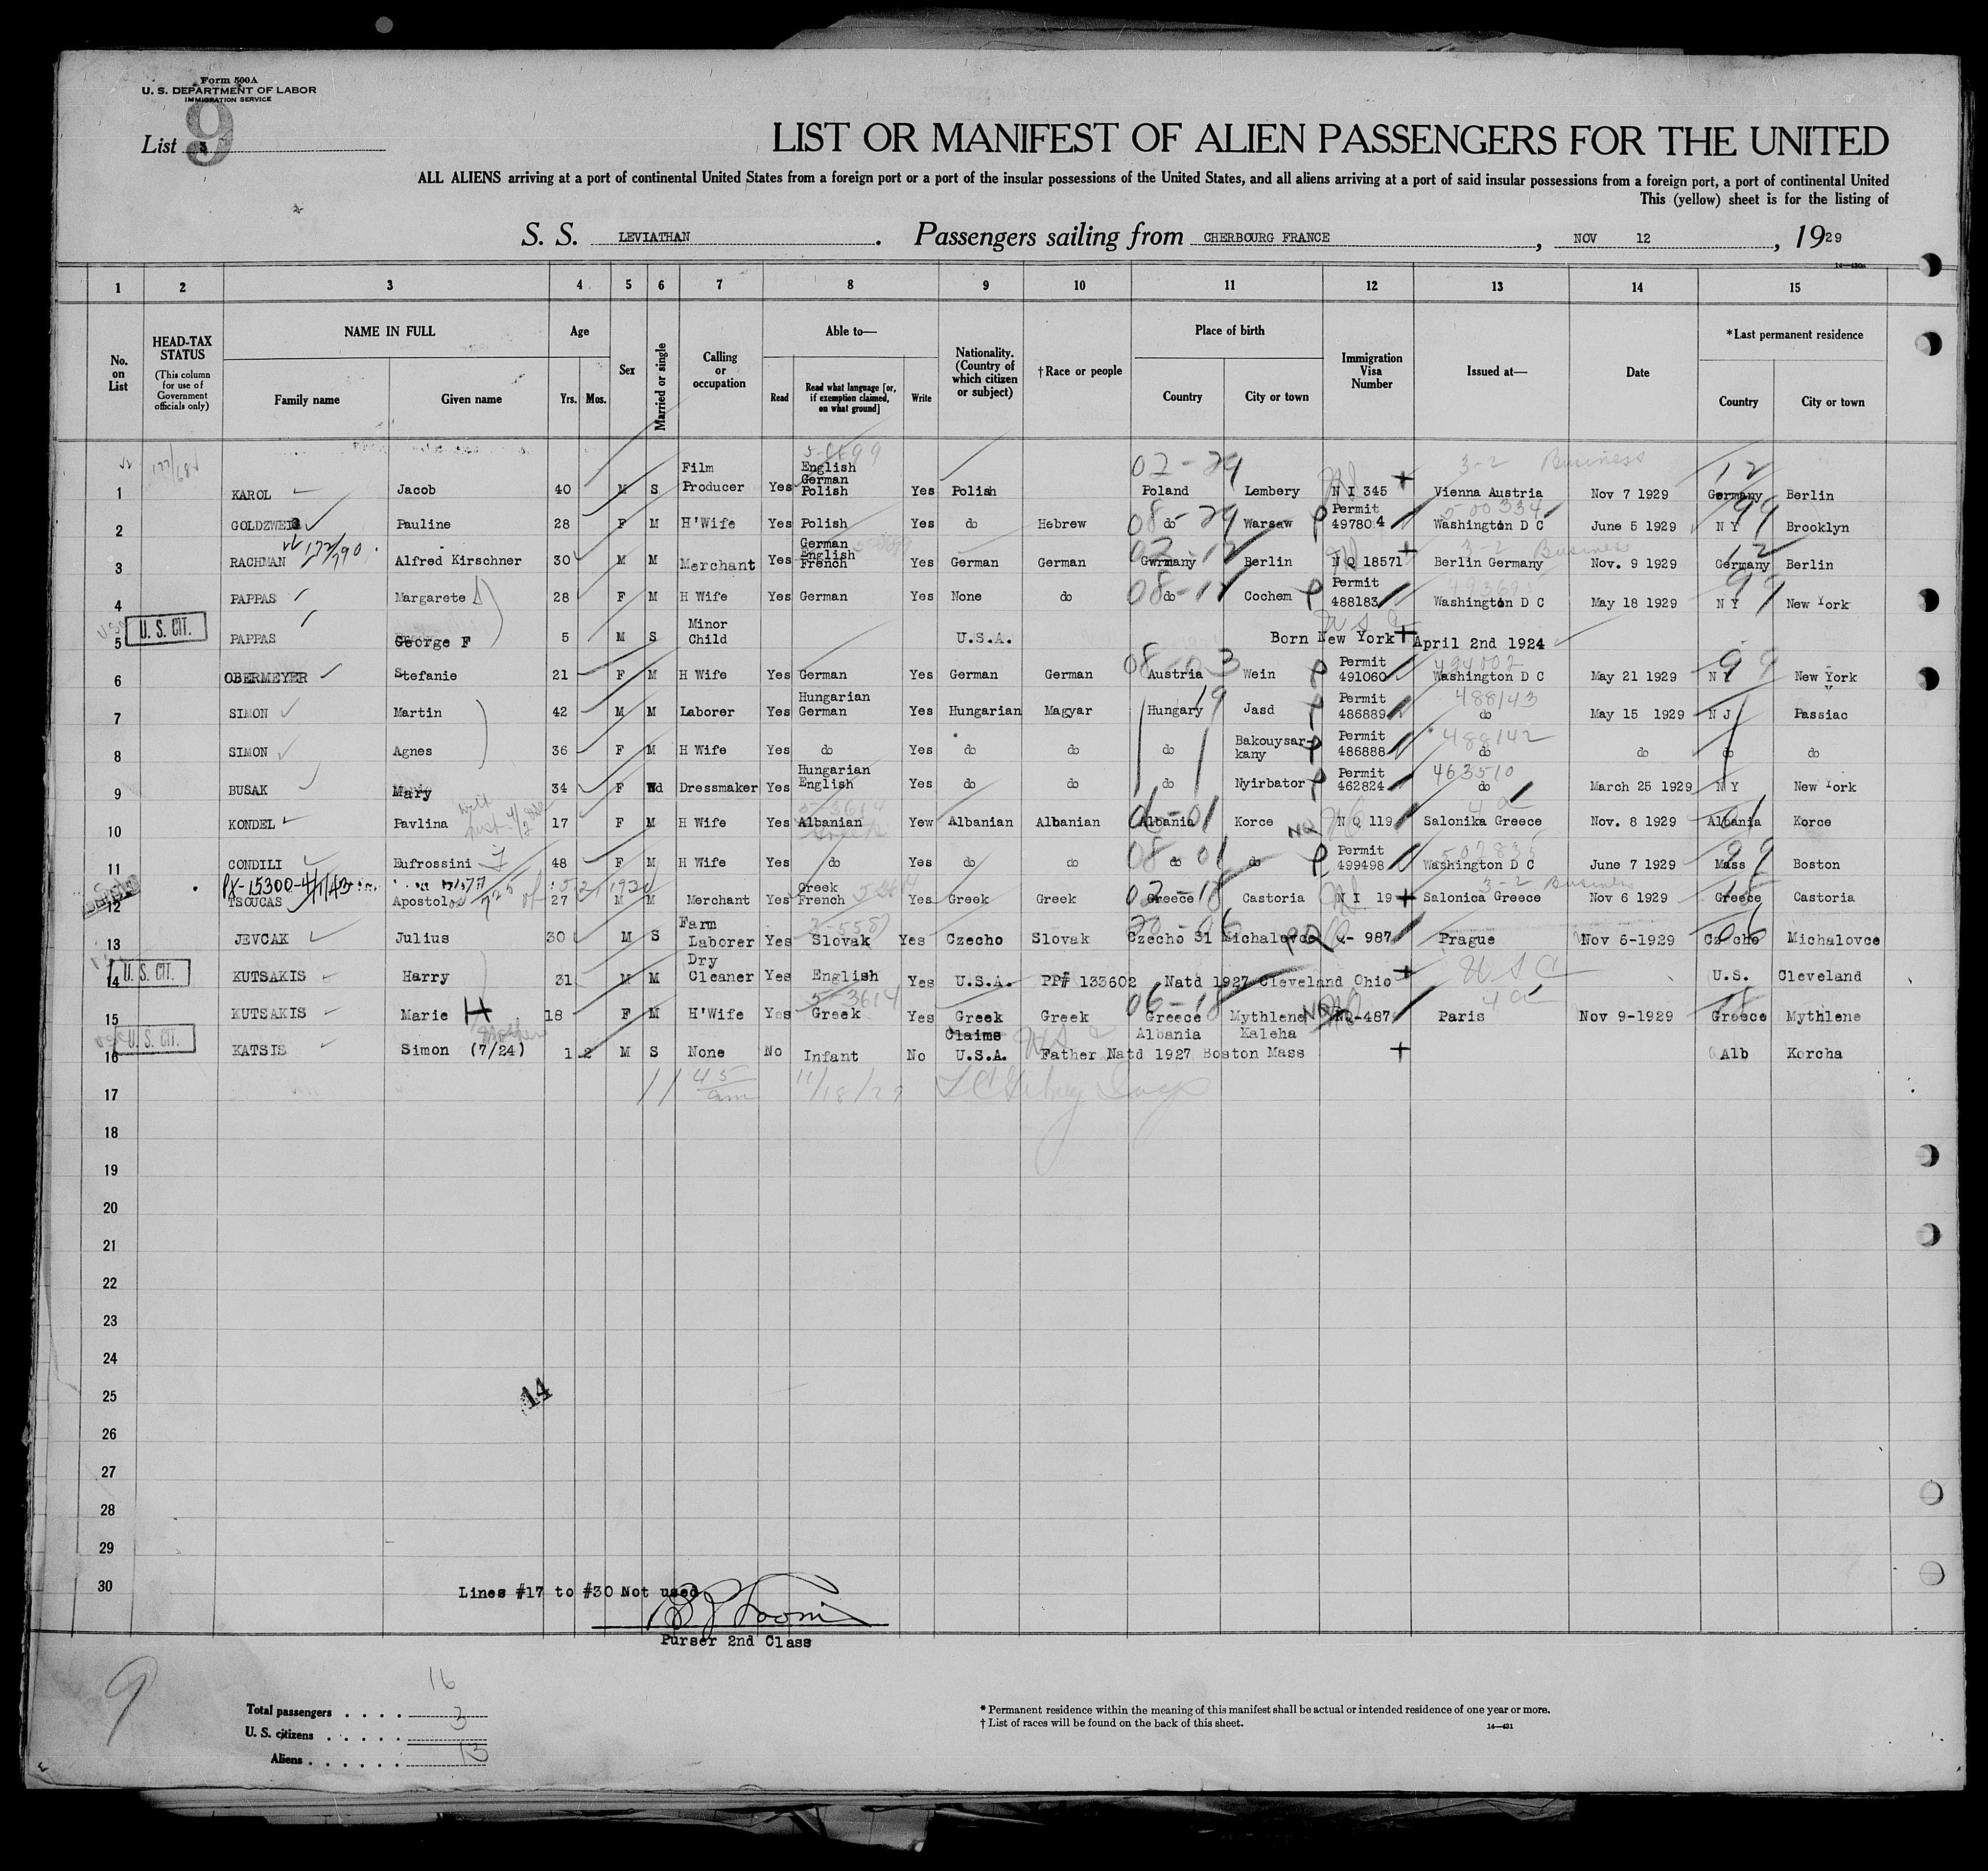 Form 500A
U. S. DEPARTMENT OF LABOR
IMMIGRATION SERVICE
9
List 3
LIST OR MANIFEST OF ALIEN PASSENGERS FOR THE UNITED
ALL ALIENS arriving at a port of continental United States from a foreign port or a port of the insular possessions of the United States, and all aliens arriving at a port of said insular possessions from a foreign port, a port of continental United
This (yellow) sheet is for the listing of
S. S. LEVIATHAN . Passengers sailing from CHERBOURG FRANCE , NOV 12 , 1929
1 2 3 4 5 6 7 8 9 10 11 12 13 14 15
No. on List
HEAD-TAX STATUS (This column for use of Government officials only)
NAME IN FULL Family name Given name
Age Yrs. Mos.
Sex
Married or single
Calling or occupation
Able to— Read Read what language [or, if exemption claimed, on what ground] Write
Nationality. (Country of which citizen or subject)
†Race or people
Place of birth Country City or town
Immigration Visa Number
Issued at—
Date
*Last permanent residence Country City or town
177/682 5-8699 02-29 3-2 Business 12
1 KAROL Jacob 40 M S Film Producer Yes English German Polish Yes Polish Poland Lembery N I 345 Vienna Austria Nov 7 1929 Germany Berlin
08-29 500334 99
2 GOLDZWEIG Pauline 28 F M H'Wife Yes Polish Yes do Hebrew do Warsaw Permit 497804 Washington D C June 5 1929 N Y Brooklyn
172/790 02-12 3-2 Business 12
3 RACHMAN Alfred Kirschner 30 M M Merchant Yes German English French Yes German German Gwrmany Berlin N Q 18571 Berlin Germany Nov. 9 1929 Germany Berlin
08-11 493695 99
4 PAPPAS Margarete 28 F M H Wife Yes German Yes None do do Cochem Permit 488183 Washington D C May 18 1929 N Y New York
U. S. CIT. USC
5 PAPPAS George F 5 M S Minor Child U.S.A. Born New York April 2nd 1924
08-03 494002 99
6 OBERMEYER Stefanie 21 F M H Wife Yes German Yes German German Austria Wein Permit 491060 Washington D C May 21 1929 N Y New York
19 488143
7 SIMON Martin 42 M M Laborer Yes Hungarian German Yes Hungarian Magyar Hungary Jasd Permit 486889 do May 15 1929 N J Passiac
488142
8 SIMON Agnes 36 F M H Wife Yes do Yes do do do Bakouysar-kany Permit 486888 do do do do
463510
9 BUSAK Mary 34 F Wd Dressmaker Yes Hungarian English Yes do do do Nyirbator Permit 462824 do March 25 1929 N Y New York
5-3614 06-01
10 KONDEL Pavlina 17 F M H Wife Yes Albanian Yew Albanian Albanian Albania Korce NQ N Q 119 Salonika Greece Nov. 8 1929 Albania Korce
08 01 502835 99
11 CONDILI Eufrossini 48 F M H Wife Yes do Yes do do do do Permit 499498 Washington D C June 7 1929 Mass Boston
PX-15300-4/1/43 02-18 3-2 Business
12 TSOUCAS Apostolos 27 M M Merchant Yes Greek French Yes Greek Greek Greece Castoria N I 19 Salonica Greece Nov 6 1929 Greece Castoria
3-5587 06
13 JEVCAK Julius 30 M S Farm Laborer Yes Slovak Yes Czecho Slovak Czecho 31 Michalovce Q- 987 Prague Nov 6-1929 Czecho Michalovce
U. S. CIT. USC
14 KUTSAKIS Harry 31 M M Dry Cleaner Yes English Yes U.S.A. PP# 133602 Natd 1927 Cleveland Ohio U.S. Cleveland
5-3614 06-18
15 KUTSAKIS Marie 18 F M H'Wife Yes Greek Yes Greek Greek Greece Mythlene NQ-487 Paris Nov 9-1929 Greece Mythlene
U. S. CIT. Claims Albania Kaleha
16 KATSIS Simon (7/24) 1 2 M S None No Infant No U.S.A. Father Natd 1927 Boston Mass Alb Korcha
17 11 45 am 11/18/29
18
19
20
21
22
23
24
25
14
26
27
28
29
30 Lines #17 to #30 Not used
Purser 2nd Class
9
16
Total passengers . . . . 3
U. S. citizens . . . . .
Aliens . . . . . . 13
* Permanent residence within the meaning of this manifest shall be actual or intended residence of one year or more.
† List of races will be found on the back of this sheet. 14—431